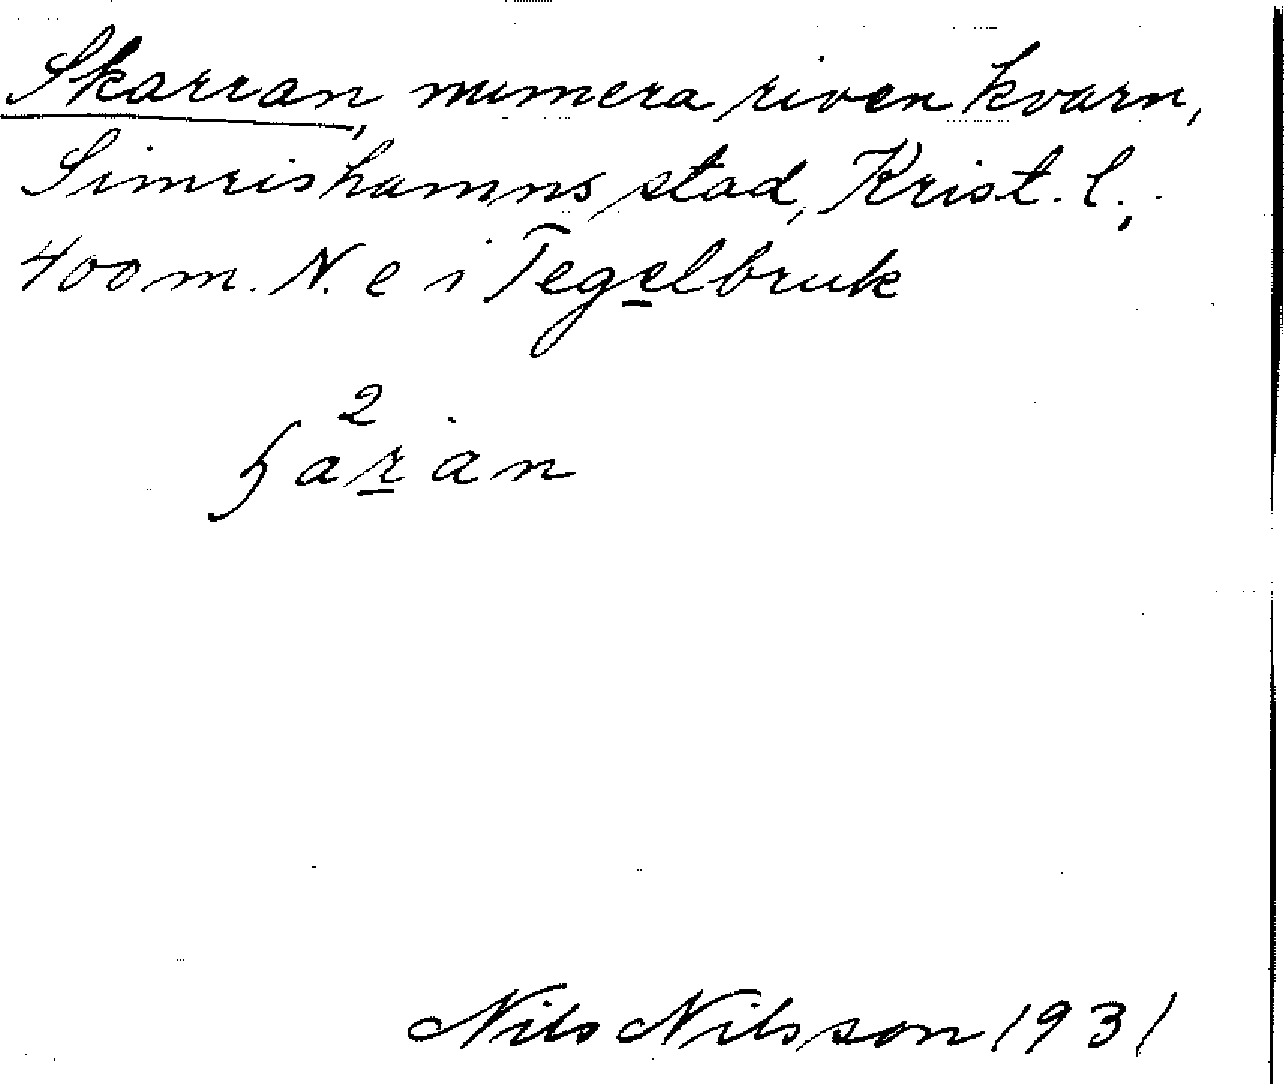 Skarran, numera riven kvarn,
Simrishamns stad, Krist. l.,
400 m. N. e i Tegelbruk
2
ɧaran
Nils Nilsson 1931